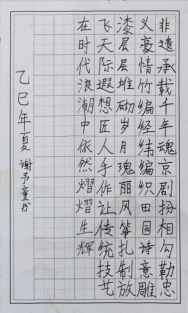 非遗承载千年魂京剧扮相勾勒忠
义豪情竹编经纬编织田园诗意雕
漆层层堆砌岁月瑰丽风筝扎制放
飞天际遐想匠人手作让传统技艺
在时代浪潮中依然熠熠生辉
乙巳年夏 谢予童书